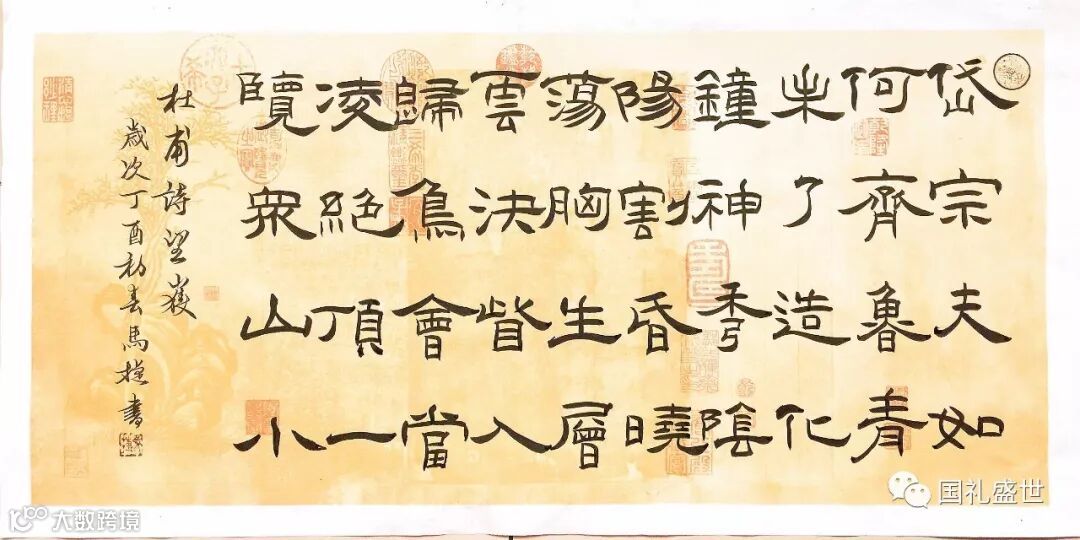 岱宗夫如
何齊魯青
未了造化
鐘神秀陰
陽割昏曉
蕩胸生層
雲決眥入
歸鳥會當
凌絕頂一
覽眾山小
杜甫詩望嶽
歲次丁酉初春馬書
国礼盛世
大数跨境